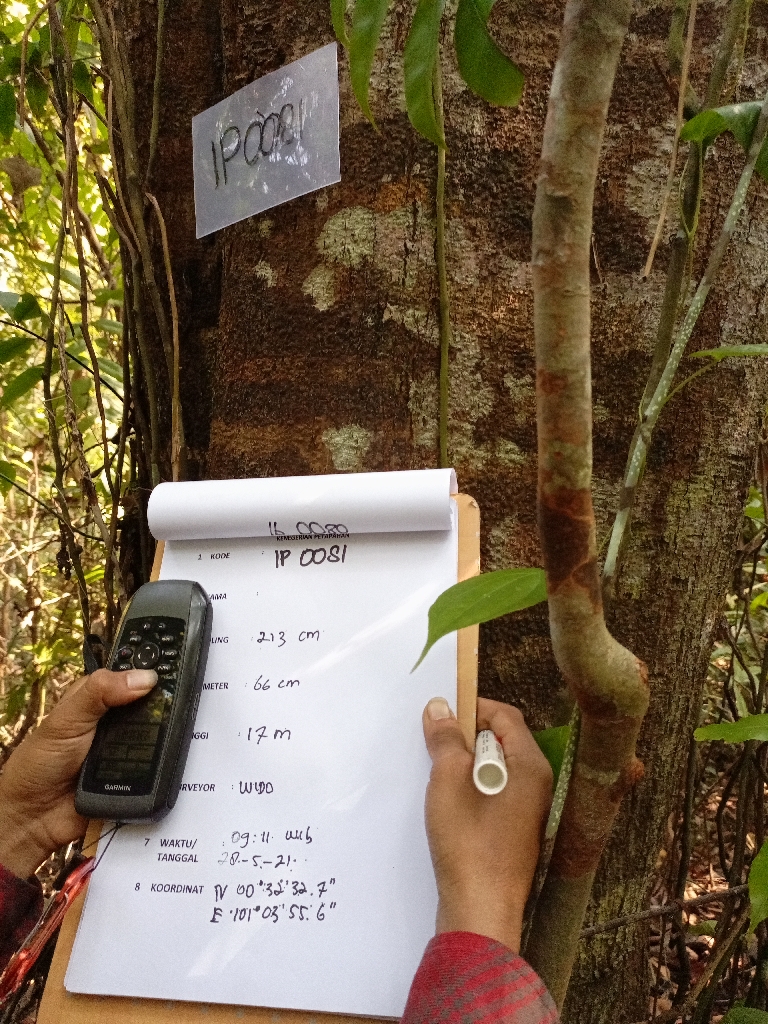 IP0081
IP 0080
KENEGERIAN PETAPAHAN
1 KODE : IP 0081
AMA :
LING : 213 cm
METER : 66 cm
NGGI : 17 m
RVEYOR : WIDO
7 WAKTU/ : 09:11 WIB
TANGGAL 28-5-21
8 KOORDINAT N 00°32'32.7"
E 101°03'55.6"
GARMIN